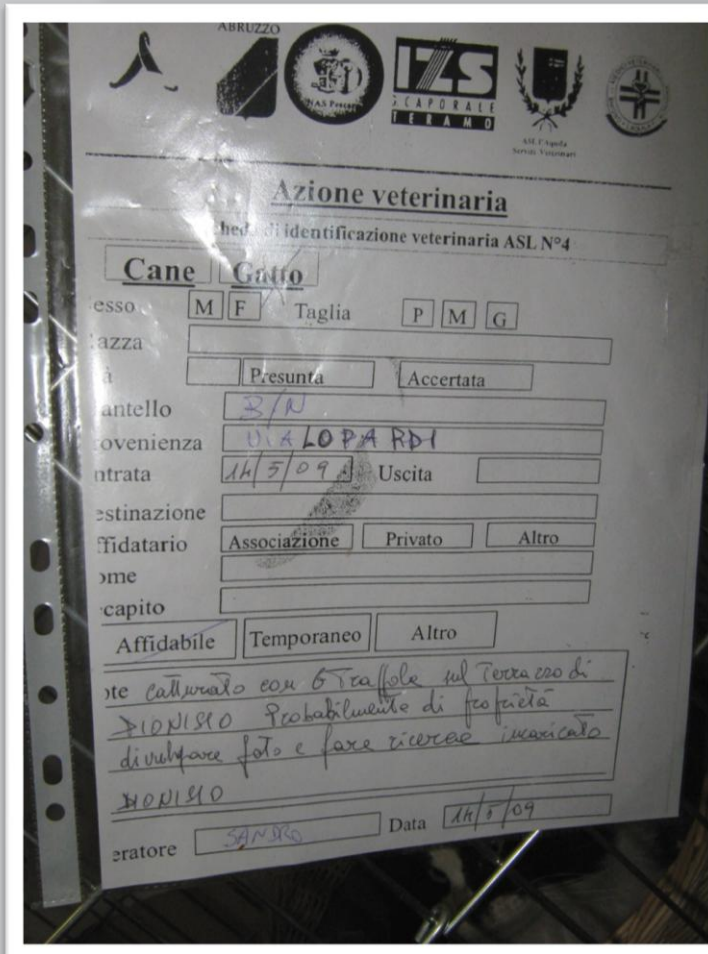 ABRUZZO
NAS Pescara
IZS
G CAPORALE
TERAMO
ASL L'Aquila
Servizi Veterinari
Azione veterinaria
heda di identificazione veterinaria ASL N°4
Cane Gatto
esso M F Taglia P M G
azza
à Presunta Accertata
antello B/N
ovenienza VIA LOPARDI
ntrata 14/5/09 Uscita
estinazione
ffidatario Associazione Privato Altro
ome
capito
Affidabile Temporaneo Altro
ote catturato con Trappola sul Terrazzo di
DIONISIO Probabilmente di proprietà
divulgare foto e fare ricerce incaricato
DIONISIO
eratore SANDRO Data 14/5/09